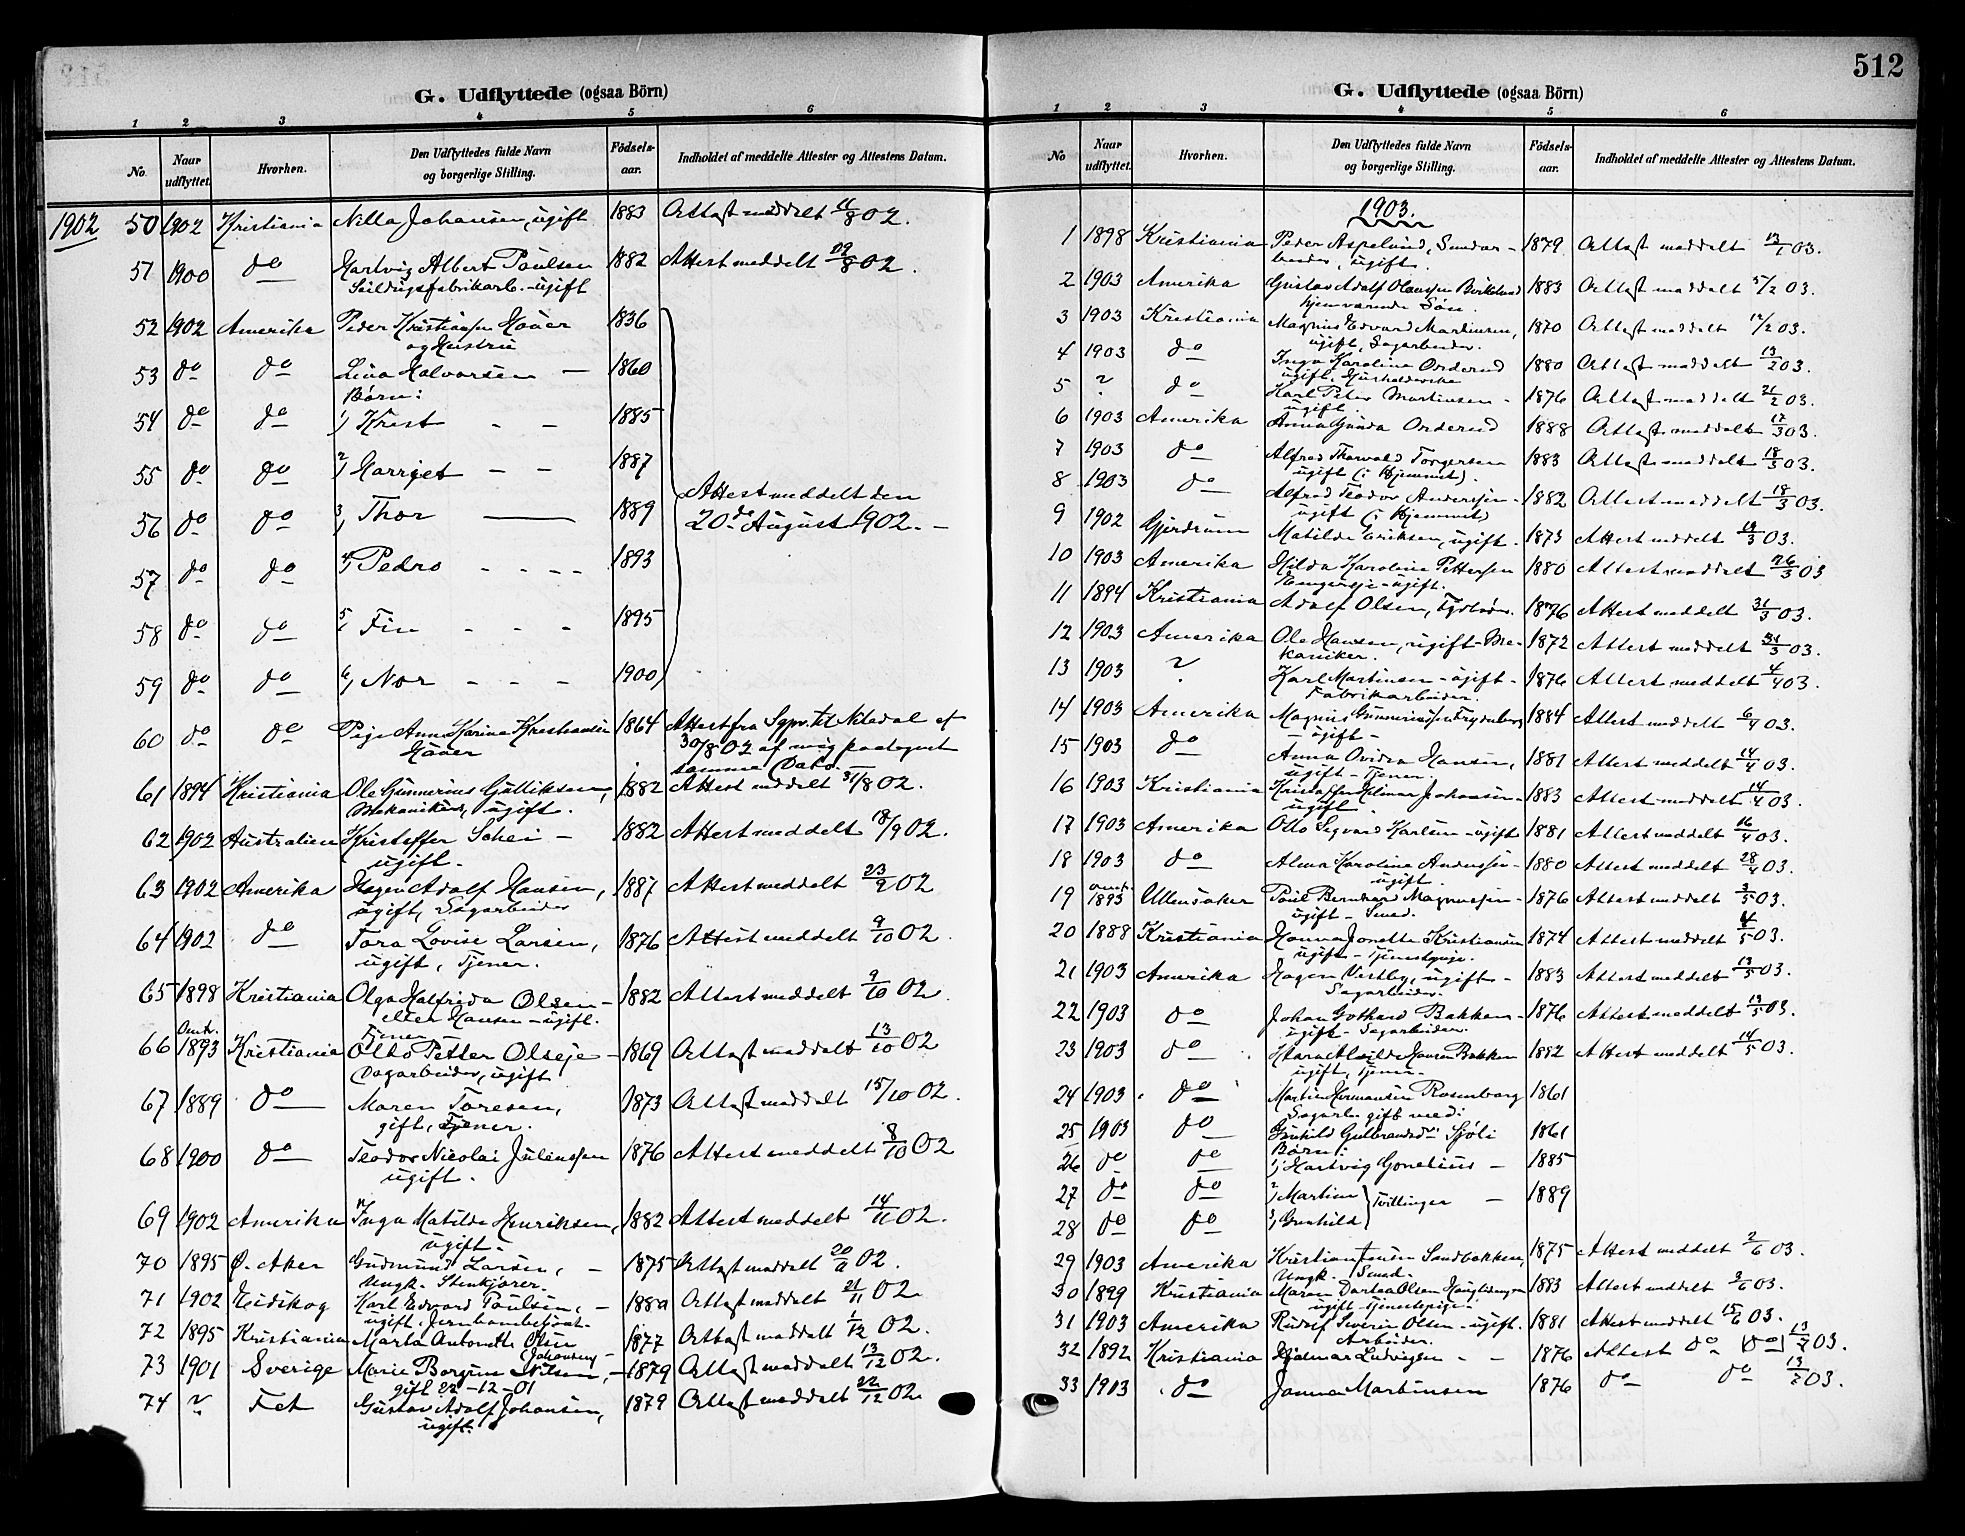 G. Udflyttede (ogsaa Börn)
1 2 3 4 5 6
No. Naar udflyttet. Hvorhen. Den Udflyttedes fulde Navn og borgerlige Stilling. Födsels-aar. Indholdet af meddelte Attester og Attestens Datum.
1902 50 1902 Kristiania Nilla Johansen, ugift 1883 Attest meddelt 11/8 02.
51 1900 do Hartvig Albert Poulsen 1882 Attest meddelt 19/8 02.
ugift
52 1902 Amerika Peder Kristiansen Hauer 1836
og Hustru
53 do do Lina Halvorsen — 1860
Børn:
54 do do 1) Krest - - 1885
55 do do 2) Harriet - - 1887
Attest meddelt den
56 do do 3) Thor — 1889 20de August 1902. -
57 do do 4) Pedro - - - - 1893
58 do do 5) Fin - - - 1895
59 do do 6) Nor - - - 1900
60 do do Pige Anne Karine Kristiansen 1864 Attest fra Sgpr. til Nitedal af
Hauer 30/8 02 af mig paategnet
samme Dato.
61 1894 Kristiania Ole Gunnerius Gulliksen, 1882 Attest meddelt 31/8 02.
ugift.
62 1902 Australien Kristoffer Schei - 1882 Attest meddelt 18/9 02.
ugift.
63 1902 Amerika Hagen Adolf Hansen, 1887 Attest meddelt 23/9 02
ugift, Sagarbeider
64 1902 do Tora Lovise Larsen, 1876 Attest meddelt 9/10 02.
ugift, Tjener.
65 1898 Kristiania Olga Halfrida Olsen - 1882 Attest meddelt 9/10 02.
eller Hansen - ugift.
Tjener
66 Omtr. 1893 Kristiania Otto Petter Olseje - 1869 Attest meddelt 13/10 02
Dagarbeider, ugift
67 1889 do Maren Toresen, 1873 Attest meddelt 15/10 02.
gift, Tjener.
68 1900 do Teodor Nicolai Julenssen 1876 Attest meddelt 8/10 02
ugift.
69 1902 Amerika Inga Matilde Henriksen, 1882 Attest meddelt 14/11 02.
ugift.
70 1895 Ø. Aker Gudmund Larsen, - 1875 Attest meddelt 20/11 02.
Ungk. Stenkjører.
71 1902 Eidskog Karl Edvard Poulsen, - Attest meddelt 21/11 02.
ugift.
72 1895 Kristiania Marta Antonette Olsen 1877 Attest meddelt 1/12 02.
(Johansen)
73 1901 Sverige Marie Borgine Nilsen, - 1879 Attest meddelt 13/12 02.
gift 22-12-01
74 ? Fet Gustav Adolf Johansen, 1879 Attest meddelt 22/12 02.
ugift.
512
G. Udflyttede (ogsaa Börn)
1 2 3 4 5 6
No Naar udflyttet. Hvorhen. Den Udflyttedes fulde Navn og borgerlige Stilling. Födsels-aar. Indholdet af meddelte Attester og Attestens Datum.
1903.
1 1898 Kristiania Peder Aspelund, 1879 Attest meddelt 12/1 03.
ugift.
2 1903 Amerika Gustav Adolf Olaussen Birkelund 1883 Attest meddelt 5/2 03.
hjemværende Søn.
3 1903 Kristiania Magnus Edvard Martinsen, 1870 Attest meddelt 12/2 03.
ugift, Sagarbeider.
4 1903 do Inga Karoline Orderud 1880 Attest meddelt 13/2 03.
ugift, Husholderske
5 ? do Karl Peter Martinsen - 1876 Attest meddelt 21/2 03.
ugift.
6 1903 Amerika Anna Gunda Orderud 1888 Attest meddelt 17/3 03.
7 1903 do Alfred Thorvald Torgersen 1883 Attest meddelt 18/3 03.
ugift (i Hjemmet).
8 1903 do Alfred Teodor Anderssen - 1882 Attest meddelt 18/3 03.
ugift (i Hjemmet)
9 1902 Gjerdrum Matilde Eriksen, ugift. 1873 Attest meddelt 19/3 03.
10 1903 Amerika Hilda Karoline Pettersen 1880 Attest meddelt 26/3 03
ugift.
11 1894 Kristiania Adolf Olsen, 1876 Attest meddelt 31/3 03.
12 1903 Amerika Ole Hansen, ugift - Me- 1872 Attest meddelt 31/3 03.
kaniker.
13 1903 ? Karl Martinsen - ugift - 1876 Attest meddelt 4/4 03.
Fabrikarbeider.
14 1903 Amerika Magnus Gunneriussen Frydenberg 1884 Attest meddelt 6/4 03.
- ugift -
15 1903 do Anna Ovidia Hansen, 1881 Attest meddelt 14/4 03.
ugift - Tjener.
16 1903 Kristiania Kristoffer Hilmar Johansen - 1883 Attest meddelt 14/4 03.
ugift
17 1903 Amerika Otto Sigvard Karlsen - ugift 1881 Attest meddelt 16/4 03.
18 1903 do Alma Karoline Anderssen - 1880 Attest meddelt 28/4 03.
ugift.
19 omtr. 1893 Ullensaker Poul Bernhard Magnussen - 1876 Attest meddelt 3/5 03.
ugift - Smed.
20 1888 Kristiania Hanna Jonette Kristiansen 1874 Attest meddelt 03.
ugift - Tjenestepige.
21 1903 Amerika Hagen Vestby, ugift - 1883 Attest meddelt 13/5 03.
Sagarbeider.
22 1903 do Johan Gothard Bakken - 1876 Attest meddelt 13/5 03.
ugift - Sagarbeider.
23 1903 do Hansen Bakken 1882 Attest meddelt 14/5 03.
ugift, Tjener.
24 1903 do Martin Hermansen Rosenborg 1861
Sagarb. gift med:
25 1903 do Gunhild Gulbrandsdr Sjöli 1861
Børn:
26 do do 1) Hartvig Gonelius - 1885
27 do do 2) Martin } Tvillinger - 1889
28 do do 3) Gunhild
29 1903 Amerika Kristian Jensen Sandbakken, 1875 Attest meddelt 2/6 03.
Ungk. Smed.
30 1899 Kristiania Maren Dortea Olsen 1883 Attest meddelt 9/6 03.
ugift - Tjenestepige
31 1903 Amerika Rudolf Severin Olsen - ugift. 1881 Attest meddelt 15/6 03.
Arbeider.
32 1892 Kristiania Hjalmar Ludvigsen - - 1876 Attest do (do) 13/7 03.
33 1903 do Janna Martinsen 1876 do do 13/7 03.